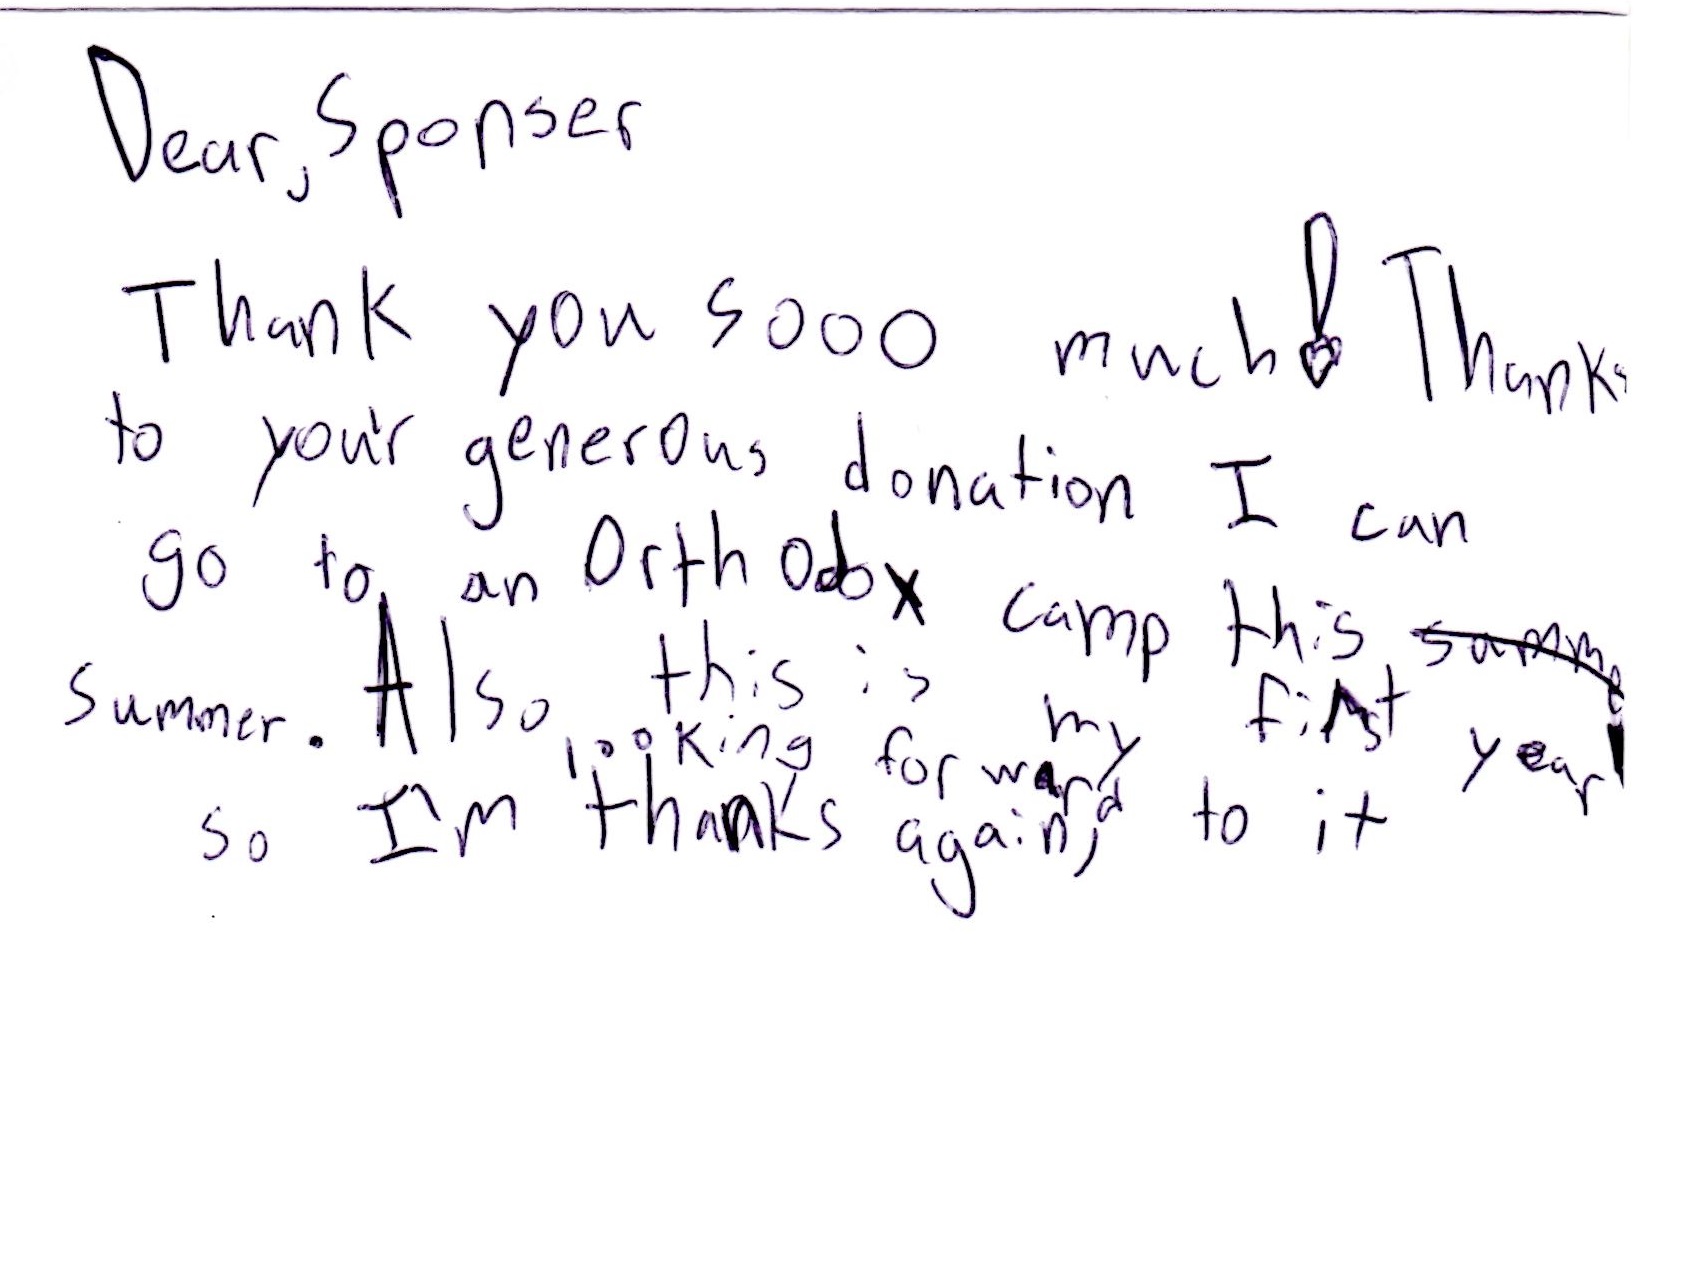 Dear, Sponser
Thank you sooo much! Thanks
to your generous donation I can
go to an Orthodox camp this summe
summer. Also, this is my first year
so I'm looking forward to it
thanks again,